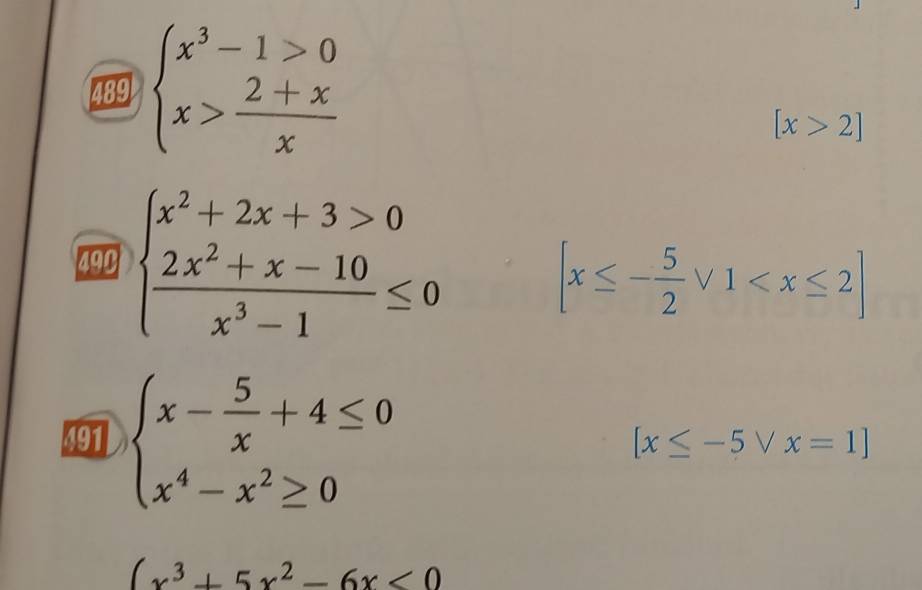 489 { x³ − 1 > 0
x > (2 + x)/x
[x > 2]
490 { x² + 2x + 3 > 0
(2x² + x − 10)/(x³ − 1) ≤ 0
[x ≤ −5/2 ∨ 1 < x ≤ 2]
491 { x − 5/x + 4 ≤ 0
x⁴ − x² ≥ 0
[x ≤ −5 ∨ x = 1]
{ x³ + 5x² − 6x < 0